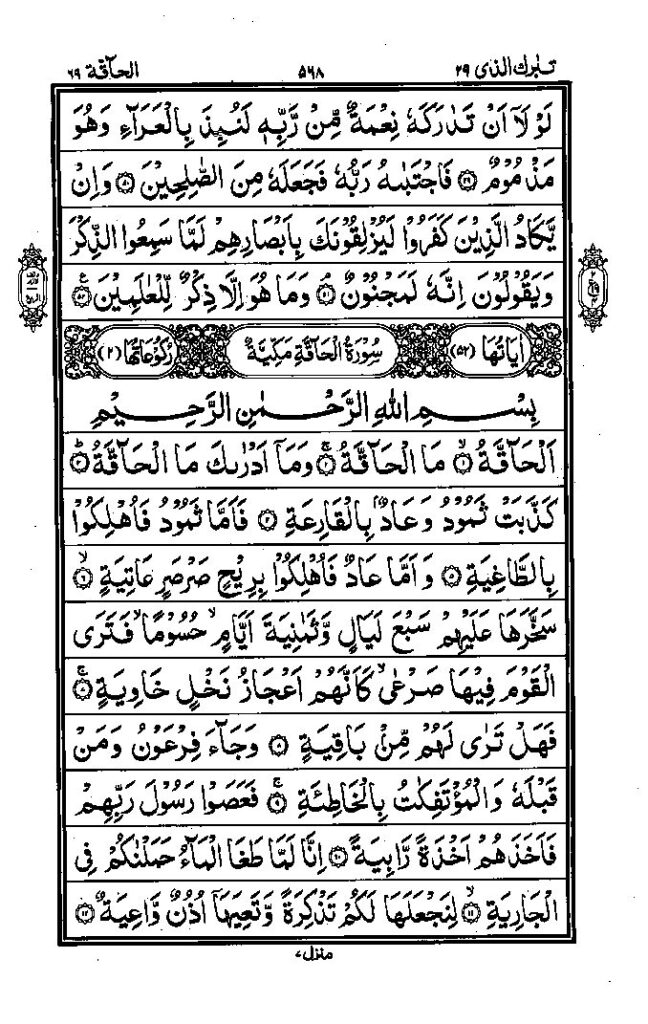 تبٰرك الذی ٢٩ ٥٦٨ الحآقة ٦٩
لَوْ لَاۤ اَنْ تَدٰرَكَهٗ نِعْمَةٌ مِّنْ رَّبِّهٖ لَنُبِذَ بِالْعَرَآءِ وَهُوَ
مَذْمُوْمٌ ﴿٤٩﴾ فَاجْتَبٰىهُ رَبُّهٗ فَجَعَلَهٗ مِنَ الصّٰلِحِيْنَ ﴿٥٠﴾ وَاِنْ
يَّكَادُ الَّذِيْنَ كَفَرُوْا لَيُزْلِقُوْنَكَ بِاَبْصَارِهِمْ لَمَّا سَمِعُوا الذِّكْرَ
وَيَقُوْلُوْنَ اِنَّهٗ لَمَجْنُوْنٌ ﴿٥١﴾ وَمَا هُوَ اِلَّا ذِكْرٌ لِّلْعٰلَمِيْنَ ﴿٥٢﴾
اٰيَاتُهَا (٥٢) سُوْرَةُ الْحَآقَّةِ مَكِّيَّةٌ رُكُوْعَاتُهَا (٢)
بِسْمِ اللّٰهِ الرَّحْمٰنِ الرَّحِيْمِ
اَلْحَآقَّةُ ﴿١﴾ مَا الْحَآقَّةُ ﴿٢﴾ وَمَاۤ اَدْرٰىكَ مَا الْحَآقَّةُ ﴿٣﴾
كَذَّبَتْ ثَمُوْدُ وَعَادٌۢ بِالْقَارِعَةِ ﴿٤﴾ فَاَمَّا ثَمُوْدُ فَاُهْلِكُوْا
بِالطَّاغِيَةِ ﴿٥﴾ وَاَمَّا عَادٌ فَاُهْلِكُوْا بِرِيْحٍ صَرْصَرٍ عَاتِيَةٍ ﴿٦﴾
سَخَّرَهَا عَلَيْهِمْ سَبْعَ لَيَالٍ وَّثَمٰنِيَةَ اَيَّامٍ ۙ حُسُوْمًا ۙ فَتَرَى
الْقَوْمَ فِيْهَا صَرْعٰى ۙ كَاَنَّهُمْ اَعْجَازُ نَخْلٍ خَاوِيَةٍ ﴿٧﴾
فَهَلْ تَرٰى لَهُمْ مِّنْۢ بَاقِيَةٍ ﴿٨﴾ وَجَآءَ فِرْعَوْنُ وَمَنْ
قَبْلَهٗ وَالْمُؤْتَفِكٰتُ بِالْخَاطِئَةِ ﴿٩﴾ فَعَصَوْا رَسُوْلَ رَبِّهِمْ
فَاَخَذَهُمْ اَخْذَةً رَّابِيَةً ﴿١٠﴾ اِنَّا لَمَّا طَغَا الْمَآءُ حَمَلْنٰكُمْ فِی
الْجَارِيَةِ ﴿١١﴾ لِنَجْعَلَهَا لَكُمْ تَذْكِرَةً وَّتَعِيَهَاۤ اُذُنٌ وَّاعِيَةٌ ﴿١٢﴾
منزل ٧